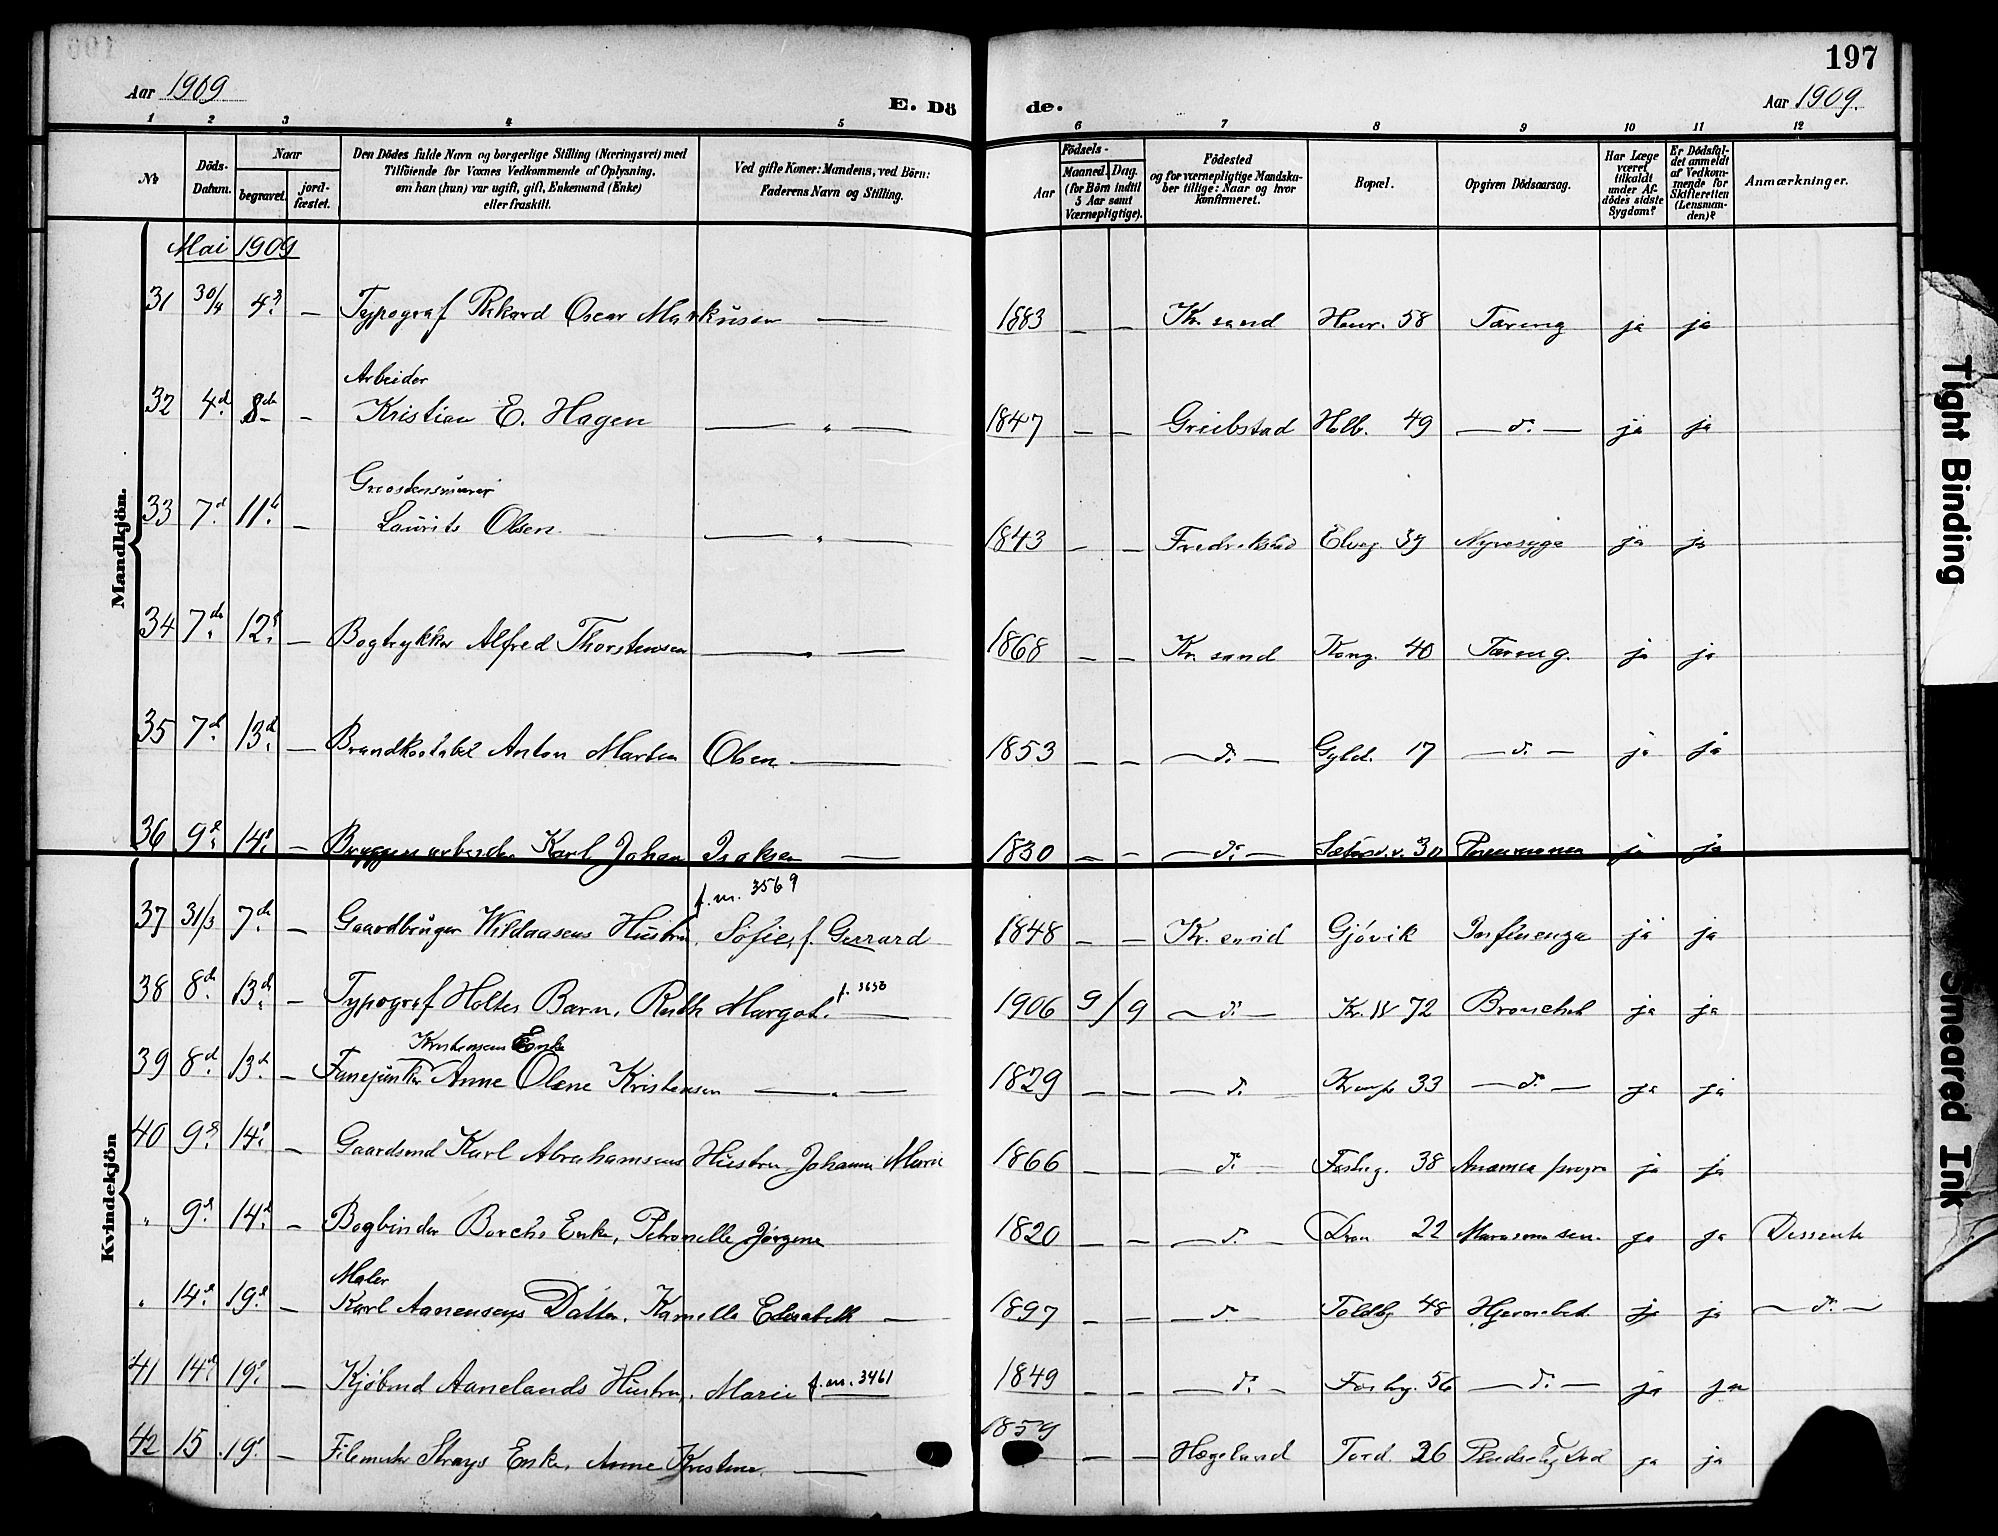 197
Aar 1909
E. Dö de.
Aar 1909.
1 2 3 4 5 6 7 8 9 10 11 12
No
Döds-Datum.
Naar
begravet.
jord-fæstet.
Den Dödes fulde Navn og borgerlige Stilling (Næringsvei) med
Tilföiende for Voxnes Vedkommende af Oplysning,
om han (hun) var ugift, gift, Enkemand (Enke)
eller fraskilt.
Ved gifte Koner: Mandens, ved Börn:
Faderens Navn og Stilling.
Födsels-
Aar
Maaned. Dag.
(for Börn indtil
5 Aar samt
Værnepligtige).
Födested
og for værnepligtige Mandska-
ber tillige: Naar og hvor
konfirmeret.
Bopæl.
Opgiven Dödsaarsag.
Har Læge
været
tilkaldt
under Af-
dödes sidste
Sygdom?
Er Dödsfal-
det anmeldt
af Vedkom-
mende for
Skifteretten
(Lensman-
den)?
Anmærkninger.
Mandkjön.
Mai 1909
31 30/4 4 — Typograf Oscar Markusen — 1883 — — Kr.sand Henr. 58 Tæring ja ja
Arbeider
32 4d 8de — Kristian E. Hagen — " — 1847 — — Greibstad Holb. 49 — d. — ja ja
33 7d 11 — Laurits Olsen — " — 1843 — — Fredrikstad Elveg. 37 Nyresyge ja ja
34 7de 12 — Bogtrykker Alfred Thorstensen — " — 1868 — — Kr.sand Kong. 40 Tæring. ja ja
35 7d 13d — Anton Martin Olsen — 1853 — — — d. — Gyld. 17 — d. — ja ja
36 9d 14d — Bryggeriarbeider Karl Johan Isaksen — 1830 — — — d. — 30 ja ja
Kvindekjön
f. nr. 3569
37 31/3 7de — Gaardbruger Wildaasens Hustru, Sofie, f. Gerrard 1848 — — Kr.sand Gjövik Influenza ja ja
38 8de 13de — Typograf Holtes Barn, Ruth Margot. — 1906 9/9 — d. — Kr. IV 72 Bronchit ja ja
Kristensens Enke
39 8d 13d — Fanejunker Anne Olene Kristensen — " — 1829 — — — d. 33 — d. — ja ja
40 9d 14d — Gaardsmd Karl Abrahamsens Hustru, Johanne Marie 1866 — — — d. 38 ja ja
" 9d 14d — Bogbinder Borchs Enke, Petronelle Jørgine 1820 — — — d. Dron 22 Marasmus sen. ja ja Dissenter
Maler
" 14d 19d — Karl Aanensens Datter, Kamilla Elisabeth — 1897 — — — d. Toldbg 48 Hjernebet. ja ja — d. —
41 14d 19d — Kjøbmd Aanelands Hustru, Marie f. nr. 3461 1849 — — — d. — 56 — d. — ja ja
42 15 19d — Enke, Anne Kristine. — 1859 — — Hægeland Tord. 26 ja ja
Tight Binding
Smeared Ink